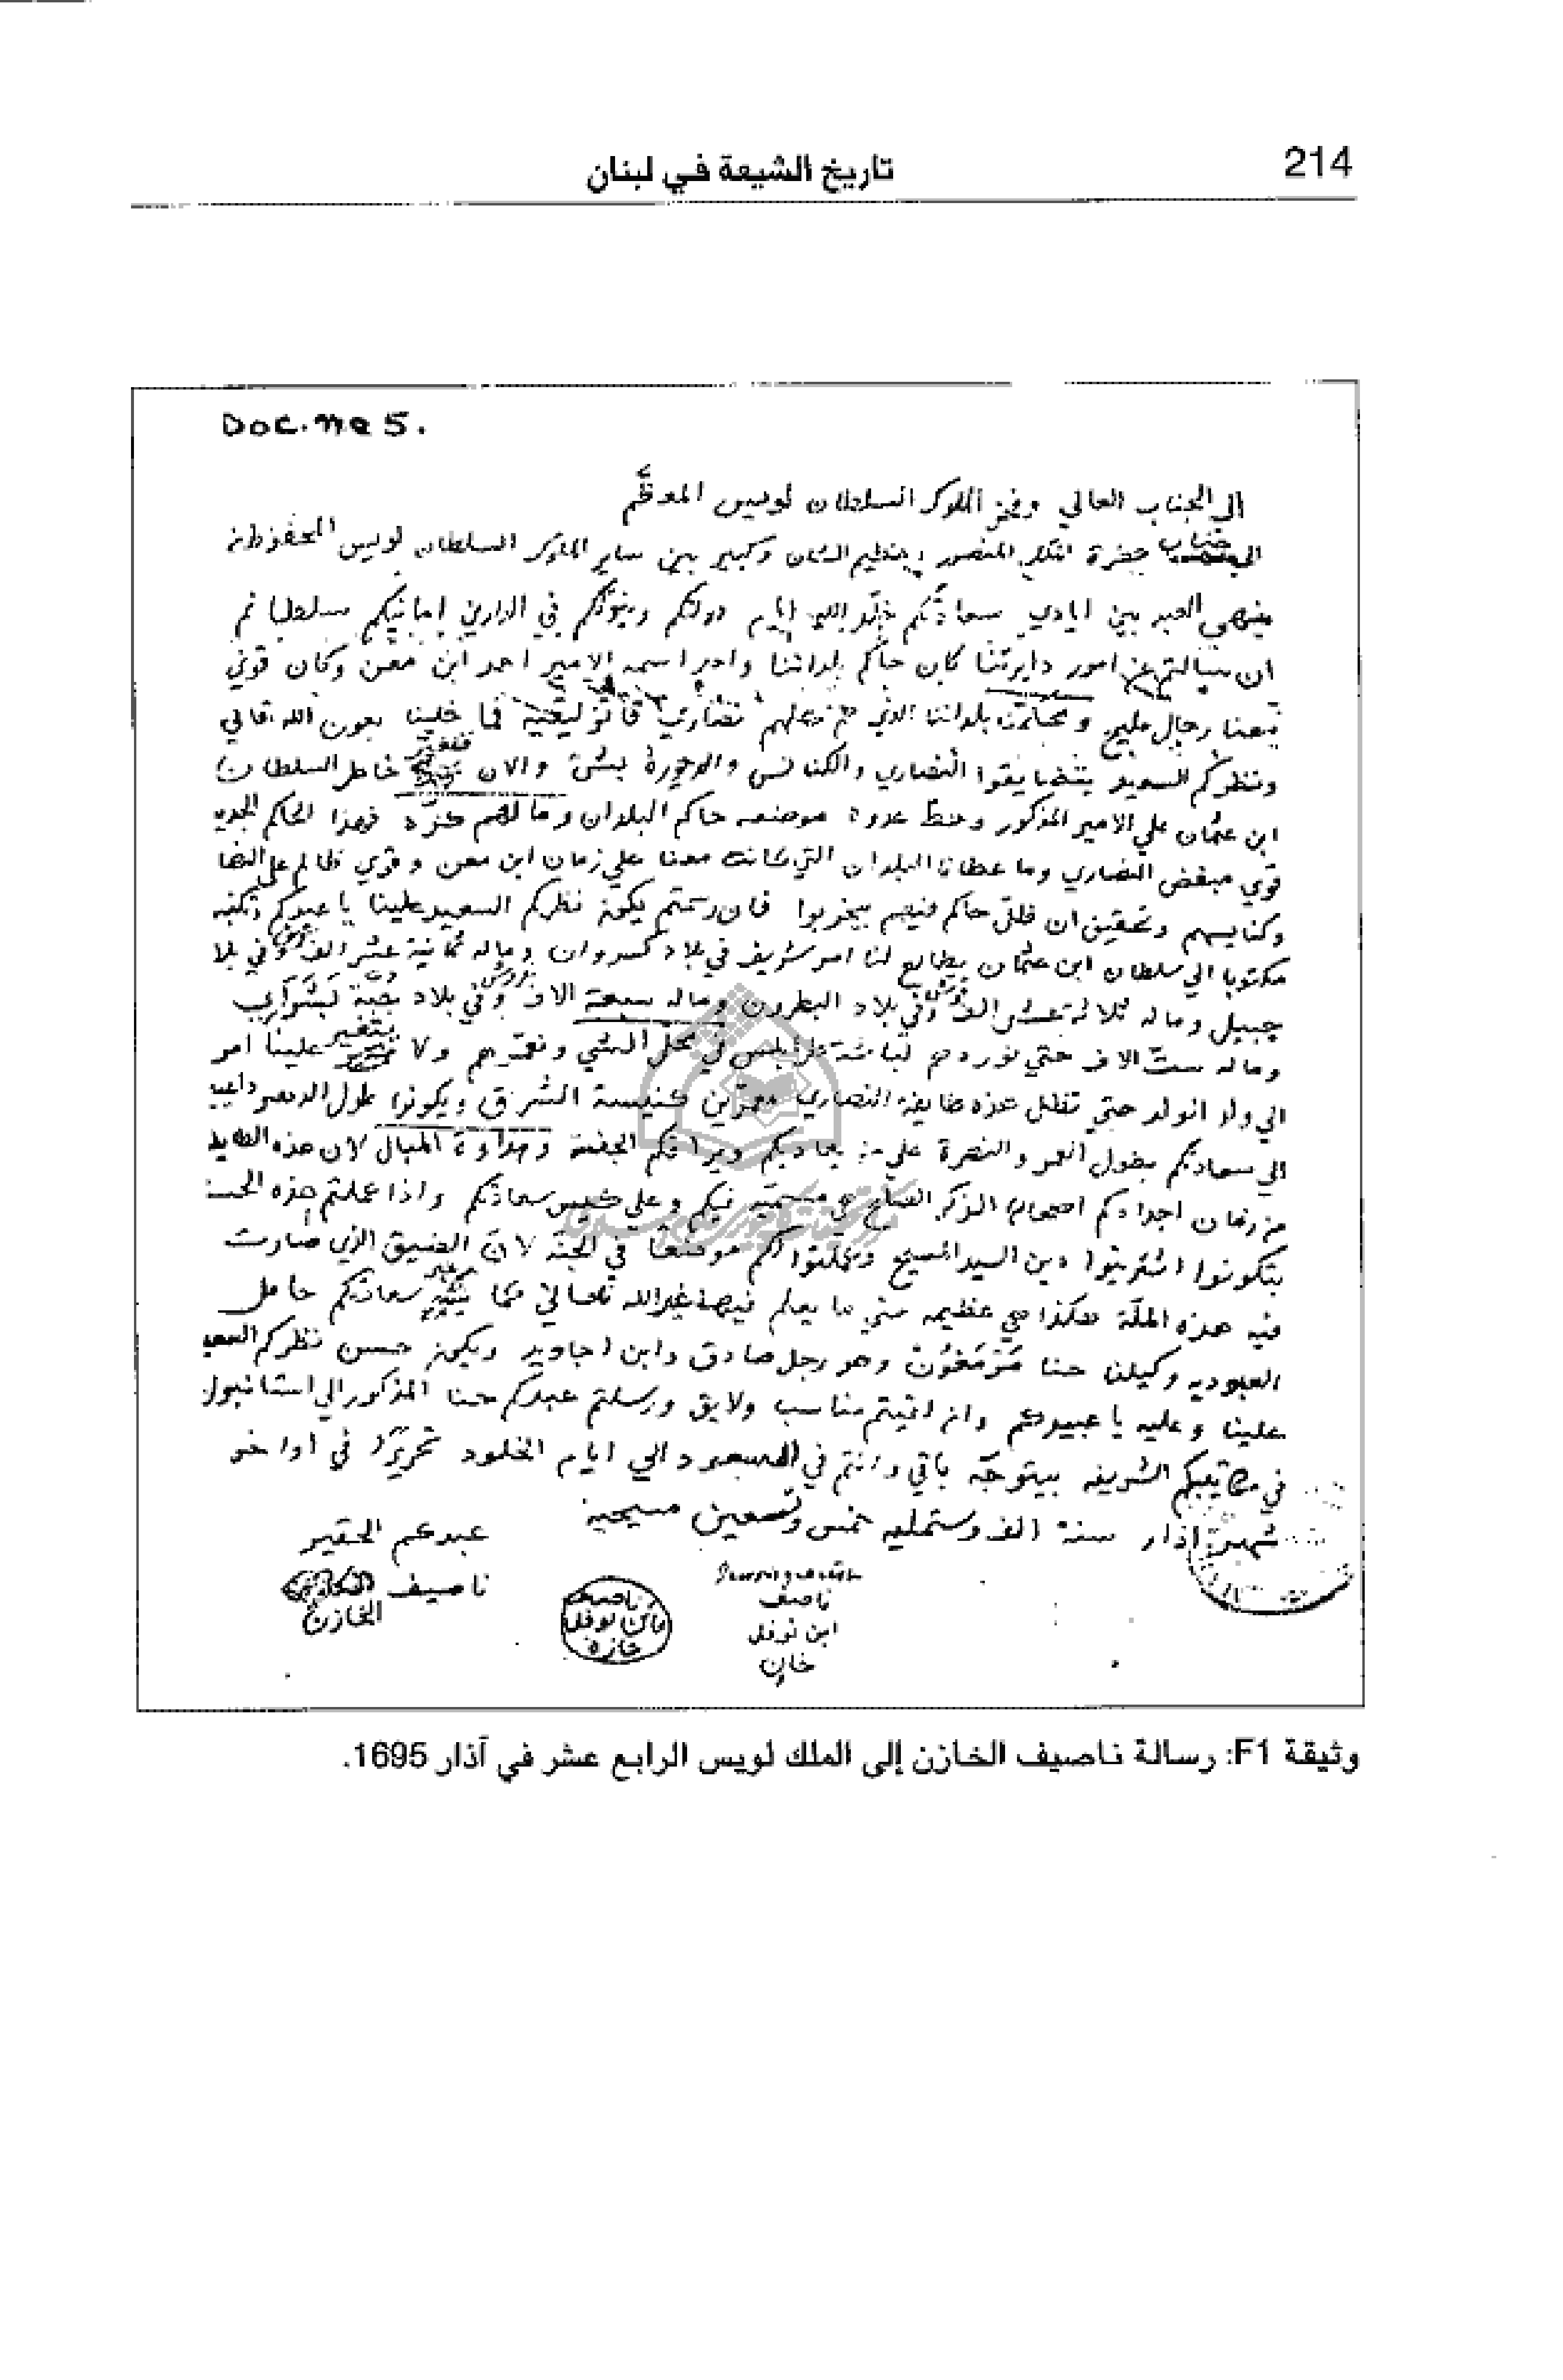 214
تاريخ الشيعة في لبنان
Doc. no 5.
الى الجناب العالي وفخر الملوك السلطان لويس المعظّم
الى جناب حضرة الملك المنصور عظيم الشان وكبير بين ساير الملوك السلطان لويس المحفوظ
ينهي العبد بين ايادي سعادتكم خلّد الله ايام دولتكم في الدارين
ان سيالتم عن امور دايرتنا كان حاكم بلداتنا واحد اسمه الامير احمد ابن معن وكان قوي
معنا رجال مليح بلداننا الذي نصاري قاتوليقيه فما خلينا بعون الله تعالي
ونظركم السعيد يتضايقوا النصاري والكنايس بشي والان خاطر السلطان
ابن عثمان علي الامير المذكور وحط عدوه موضعه حاكم البلدان وما فهذا الحاكم الجديد
قوي مبغض النصاري وما عطانا البلدان التي كانت معنا علي زمان ابن معن وقوي ظالم على النصا
وكنايسهم وتحقيق ان ظلّ حاكم فيهم بيخربوا فان رسمتم يكون نظركم السعيد علينا يا عبيدكم
مكتوبا الي سلطان ابن عثمان يطالع لنا امر شريف في بلاد كسروان وماله ثمانية عشر الف وفي بلا
جبيل وماله ثلاثة عشر الف وفي بلاد البطرون وماله سبعة الاف وفي بلاد جبّة بشراي
وماله ست الاف حتي نوردهم لباشة طرابلس في محل الشي ولا يتغير علينا امر
الي ولد الولد حتي تظل هذه طايفة النصاري معمّرين كنيسة الشرق ويكونوا طول الدهر داعيه
الي سعادتكم بطول العمر والنصرة علي من يعاديكم لان هذه الطايفه
من زمان اجدادكم اصحاب الذكر الصالح هي فيكم وعلي سعادتكم واذا عملتم هذه الحسنه
بتكونوا اشتريتوا دين السيد المسيح وعملتوا لكم موضعا في الجنّة لان الضيق الذي صارت
فيه هذه الملّة هكذا هي عظيمه حتي ما يعلم فيها غير الله تعالى سعادتكم حامل
العبوديه وكيلنا حنا وهو رجل صادق وابن اجاويد ويكون حسن نظركم السعيد
علينا وعليه يا عبيدكم وان لقيتم مناسب ولايق ورسلتم عبدكم حنا المذكور الي استانبول
في مكاتيبكم الشريفه بيتوجّه ياتي وانتم في السعود الي ايام الخلود تحريرًا في اواخر
شهر اذار سنة الف وستمايه خمس وتسعين مسيحية
عبدكم الحقير
ناصيف
الخازن
ناصيف
ابن نوفل
خازن
ناصيف
ابن نوفل
خازن
وثيقة F1: رسالة ناصيف الخازن إلى الملك لويس الرابع عشر في آذار 1695.